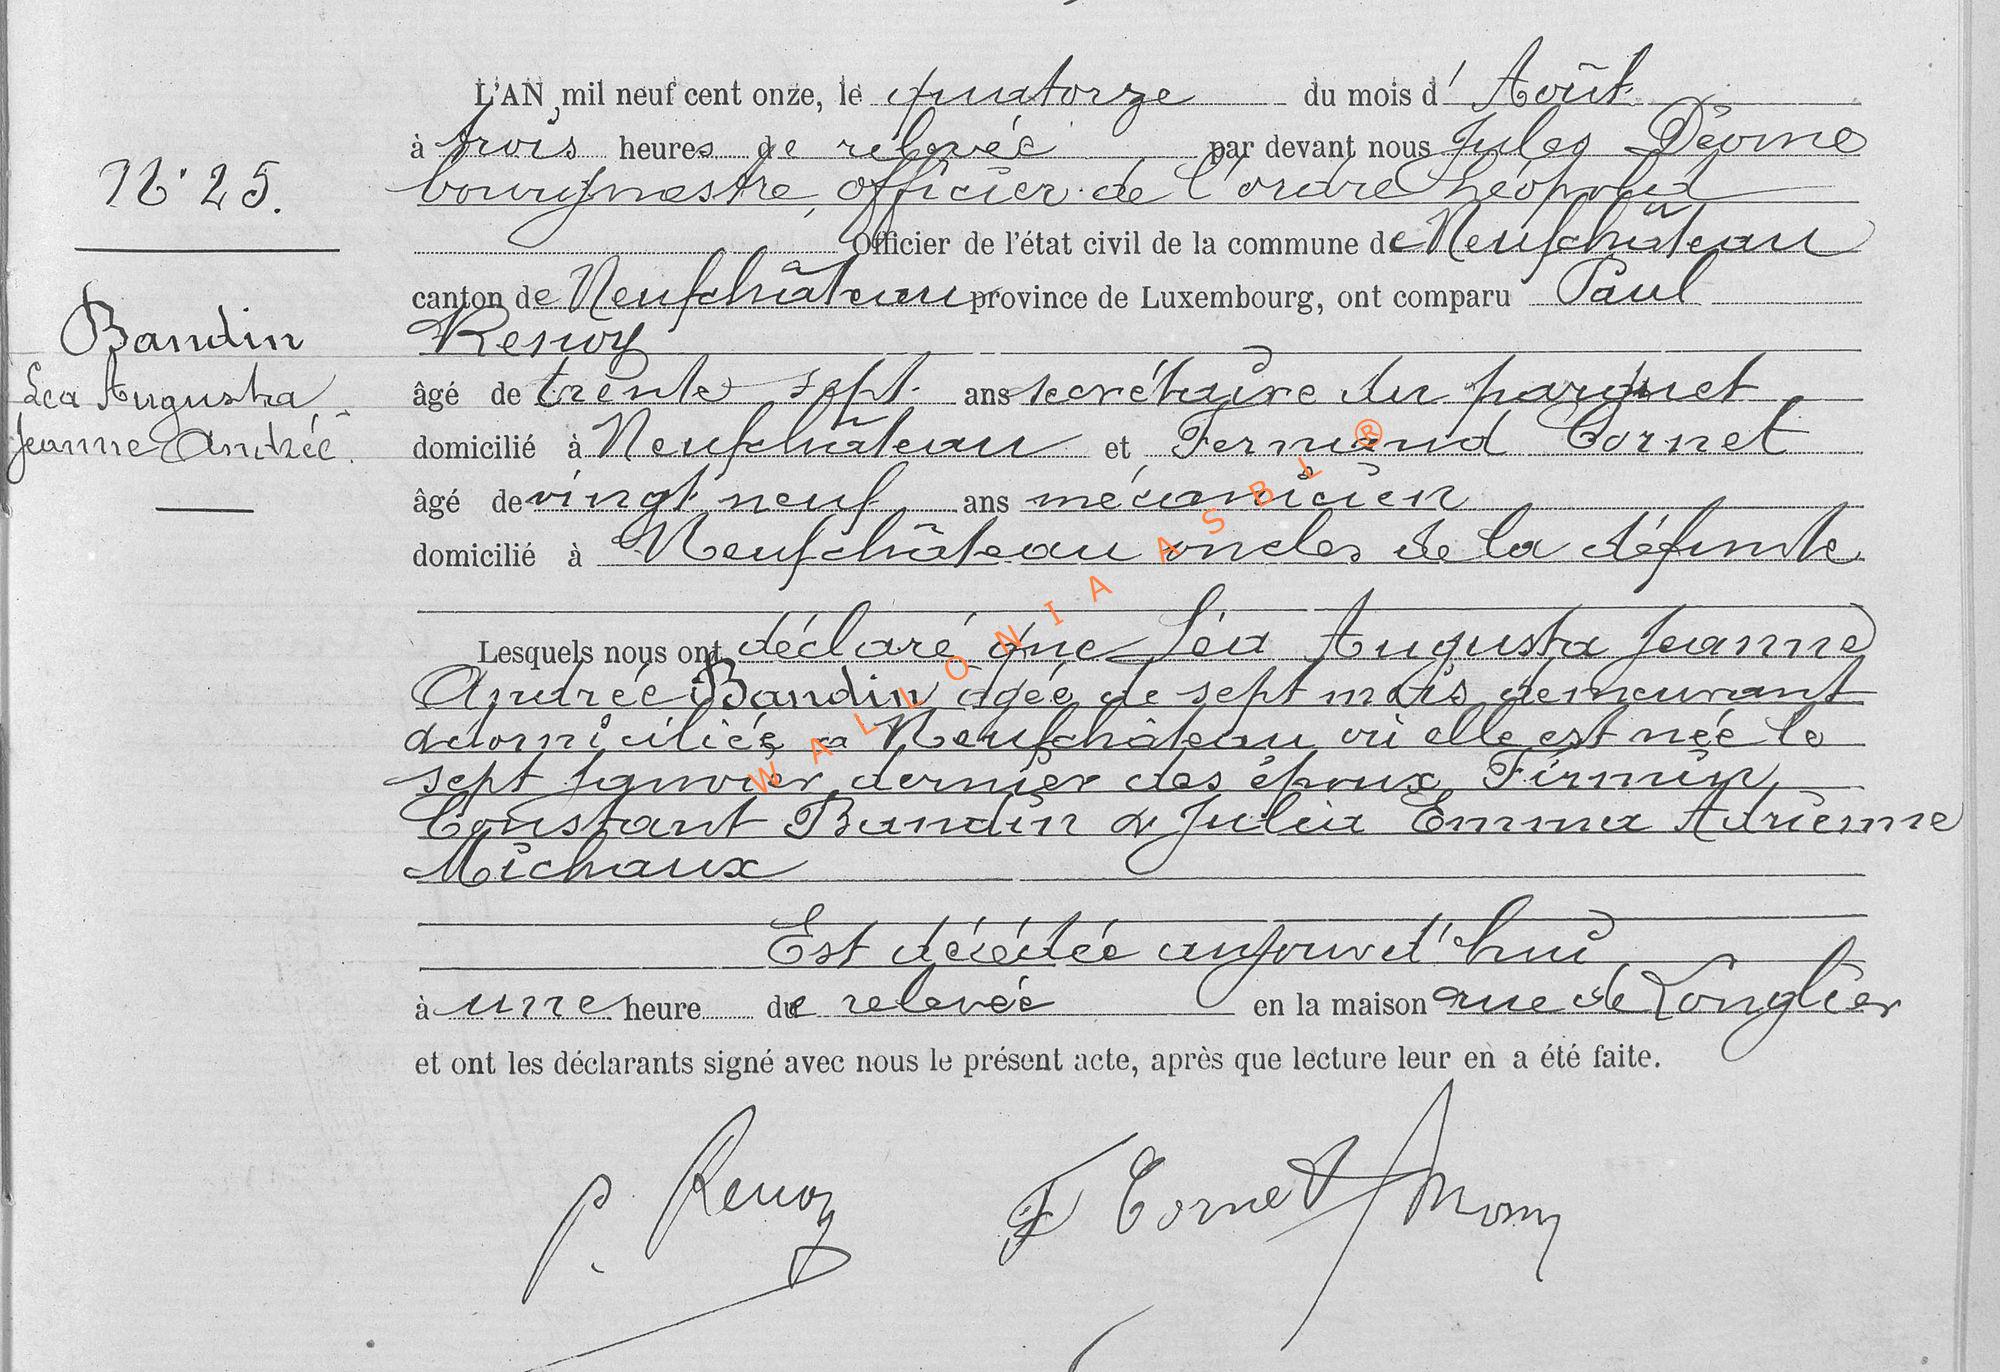 L'AN mil neuf cent onze, le quatorze du mois d' Août
à trois heures de relevée par devant nous Jules
bourgmestre, officier de l'ordre Léopold
Officier de l'état civil de la commune de Neufchâteau
N° 25.
canton de Neufchâteau province de Luxembourg, ont comparu Paul
Renoy
âgé de trente sept ans secrétaire du parquet
domicilié à Neufchâteau et Fernand Cornet
âgé de vingt neuf ans mécanicien
domicilié à Neufchâteau oncles de la défunte
Baudin
Léa Augusta
Jeanne Andrée.
Lesquels nous ont déclaré que Léa Augusta Jeanne
Andrée Baudin agée de sept mois demeurant
&domiciliée a Neufchâteau où elle est née le
sept janvier dernier des époux Firmin
Constant Baudin & Julia Emma Adrienne
Michaux
Est décédée aujourd'hui
à une heure de relevée en la maison rue de Longlier
et ont les déclarants signé avec nous le présent acte, après que lecture leur en a été faite.
P. Renoy F Cornet
WALLONIA ASBL ®